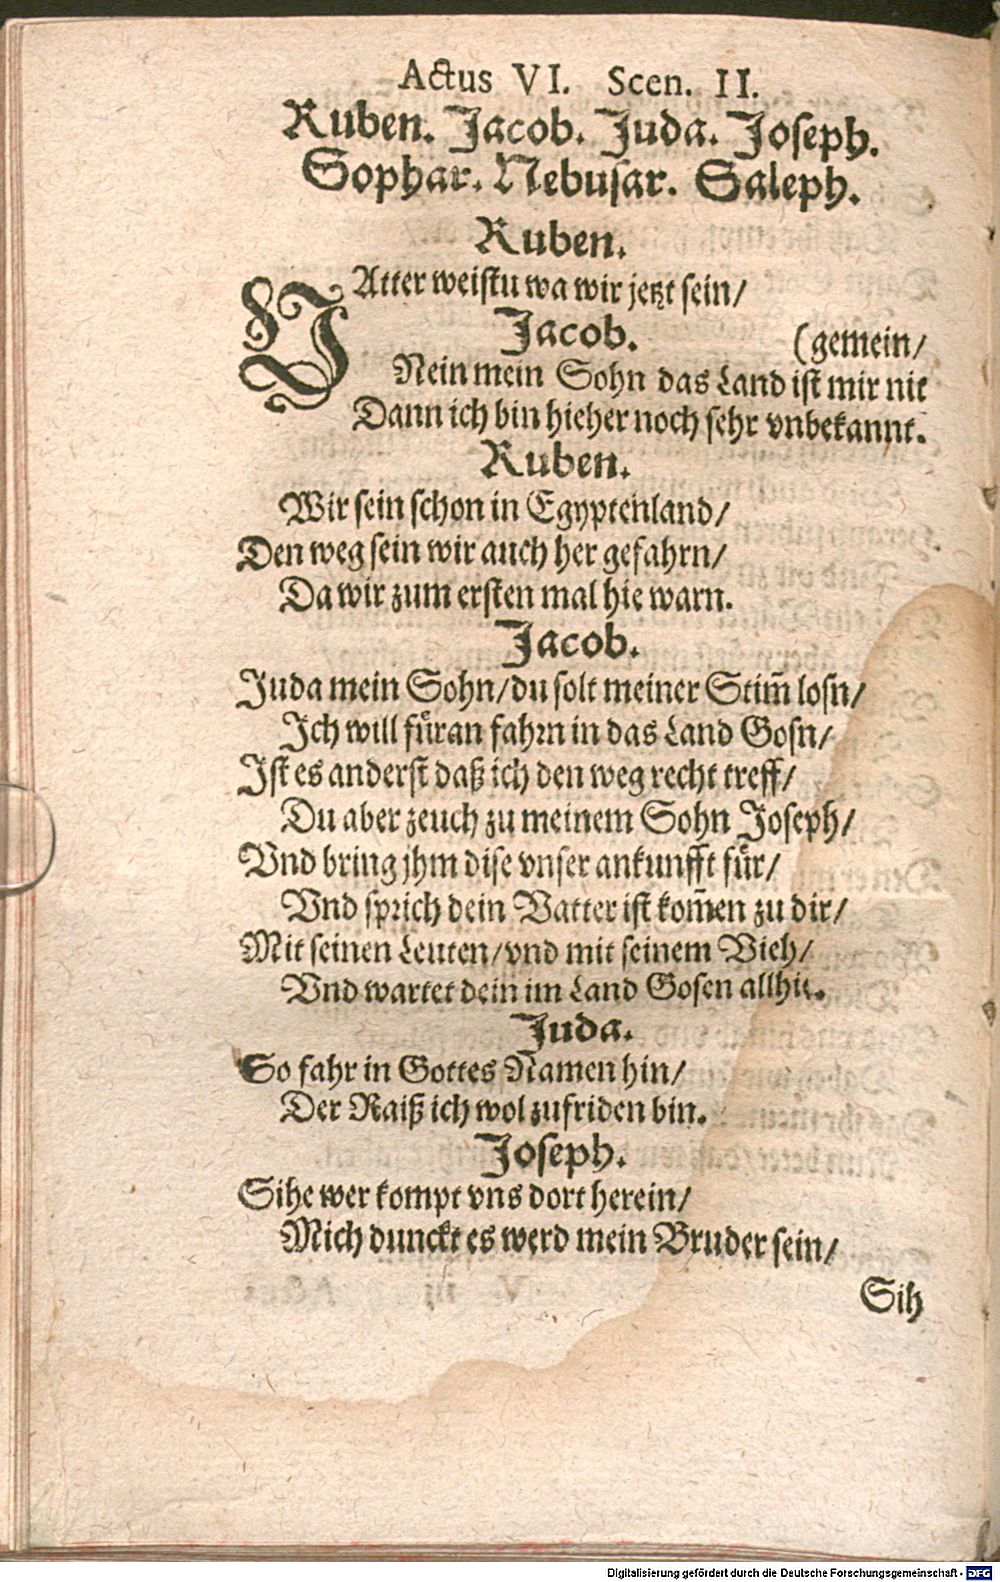 Actus VI. Scen. II.
Ruben. Jacob. Juda. Joseph.
Sophar. Nebusar. Saleph.
Ruben.
VAtter weistu wa wir jetzt sein/
Jacob. (gemein/
Nein mein Sohn das Land ist mir nit
Dann ich bin hieher noch sehr vnbekannt.
Ruben.
Wir sein schon in Egyptenland/
Den weg sein wir auch her gefahrn/
Da wir zum ersten mal hie warn.
Jacob.
Juda mein Sohn/du solt meiner Stim̃ losn/
Ich will fuͤran fahrn in das Land Gosn/
Ist es anderst daß ich den weg recht treff/
Du aber zeuch zu meinem Sohn Joseph/
Vnd bring jhm dise vnser ankunfft fuͤr/
Vnd sprich dein Vatter ist kom̃en zu dir/
Mit seinen Leuten/vnd mit seinem Vieh/
Vnd wartet dein im Land Gosen allhie.
Juda.
So fahr in Gottes Namen hin/
Der Raiß ich wol zufriden bin.
Joseph.
Sihe wer kompt vns dort herein/
Mich dunckt es werd mein Bruder sein/
Sih
Digitalisierung gefördert durch die Deutsche Forschungsgemeinschaft - DFG